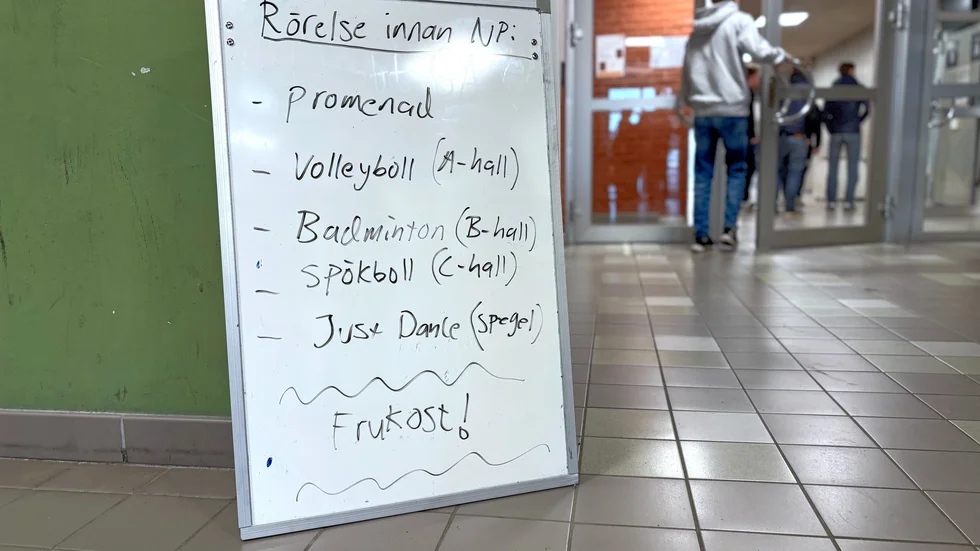 Rörelse innan NP:
- Promenad
- Volleyboll (A-hall)
- Badminton (B-hall)
- Spökboll (C-hall)
- Just Dance (Spegel)
Frukost!